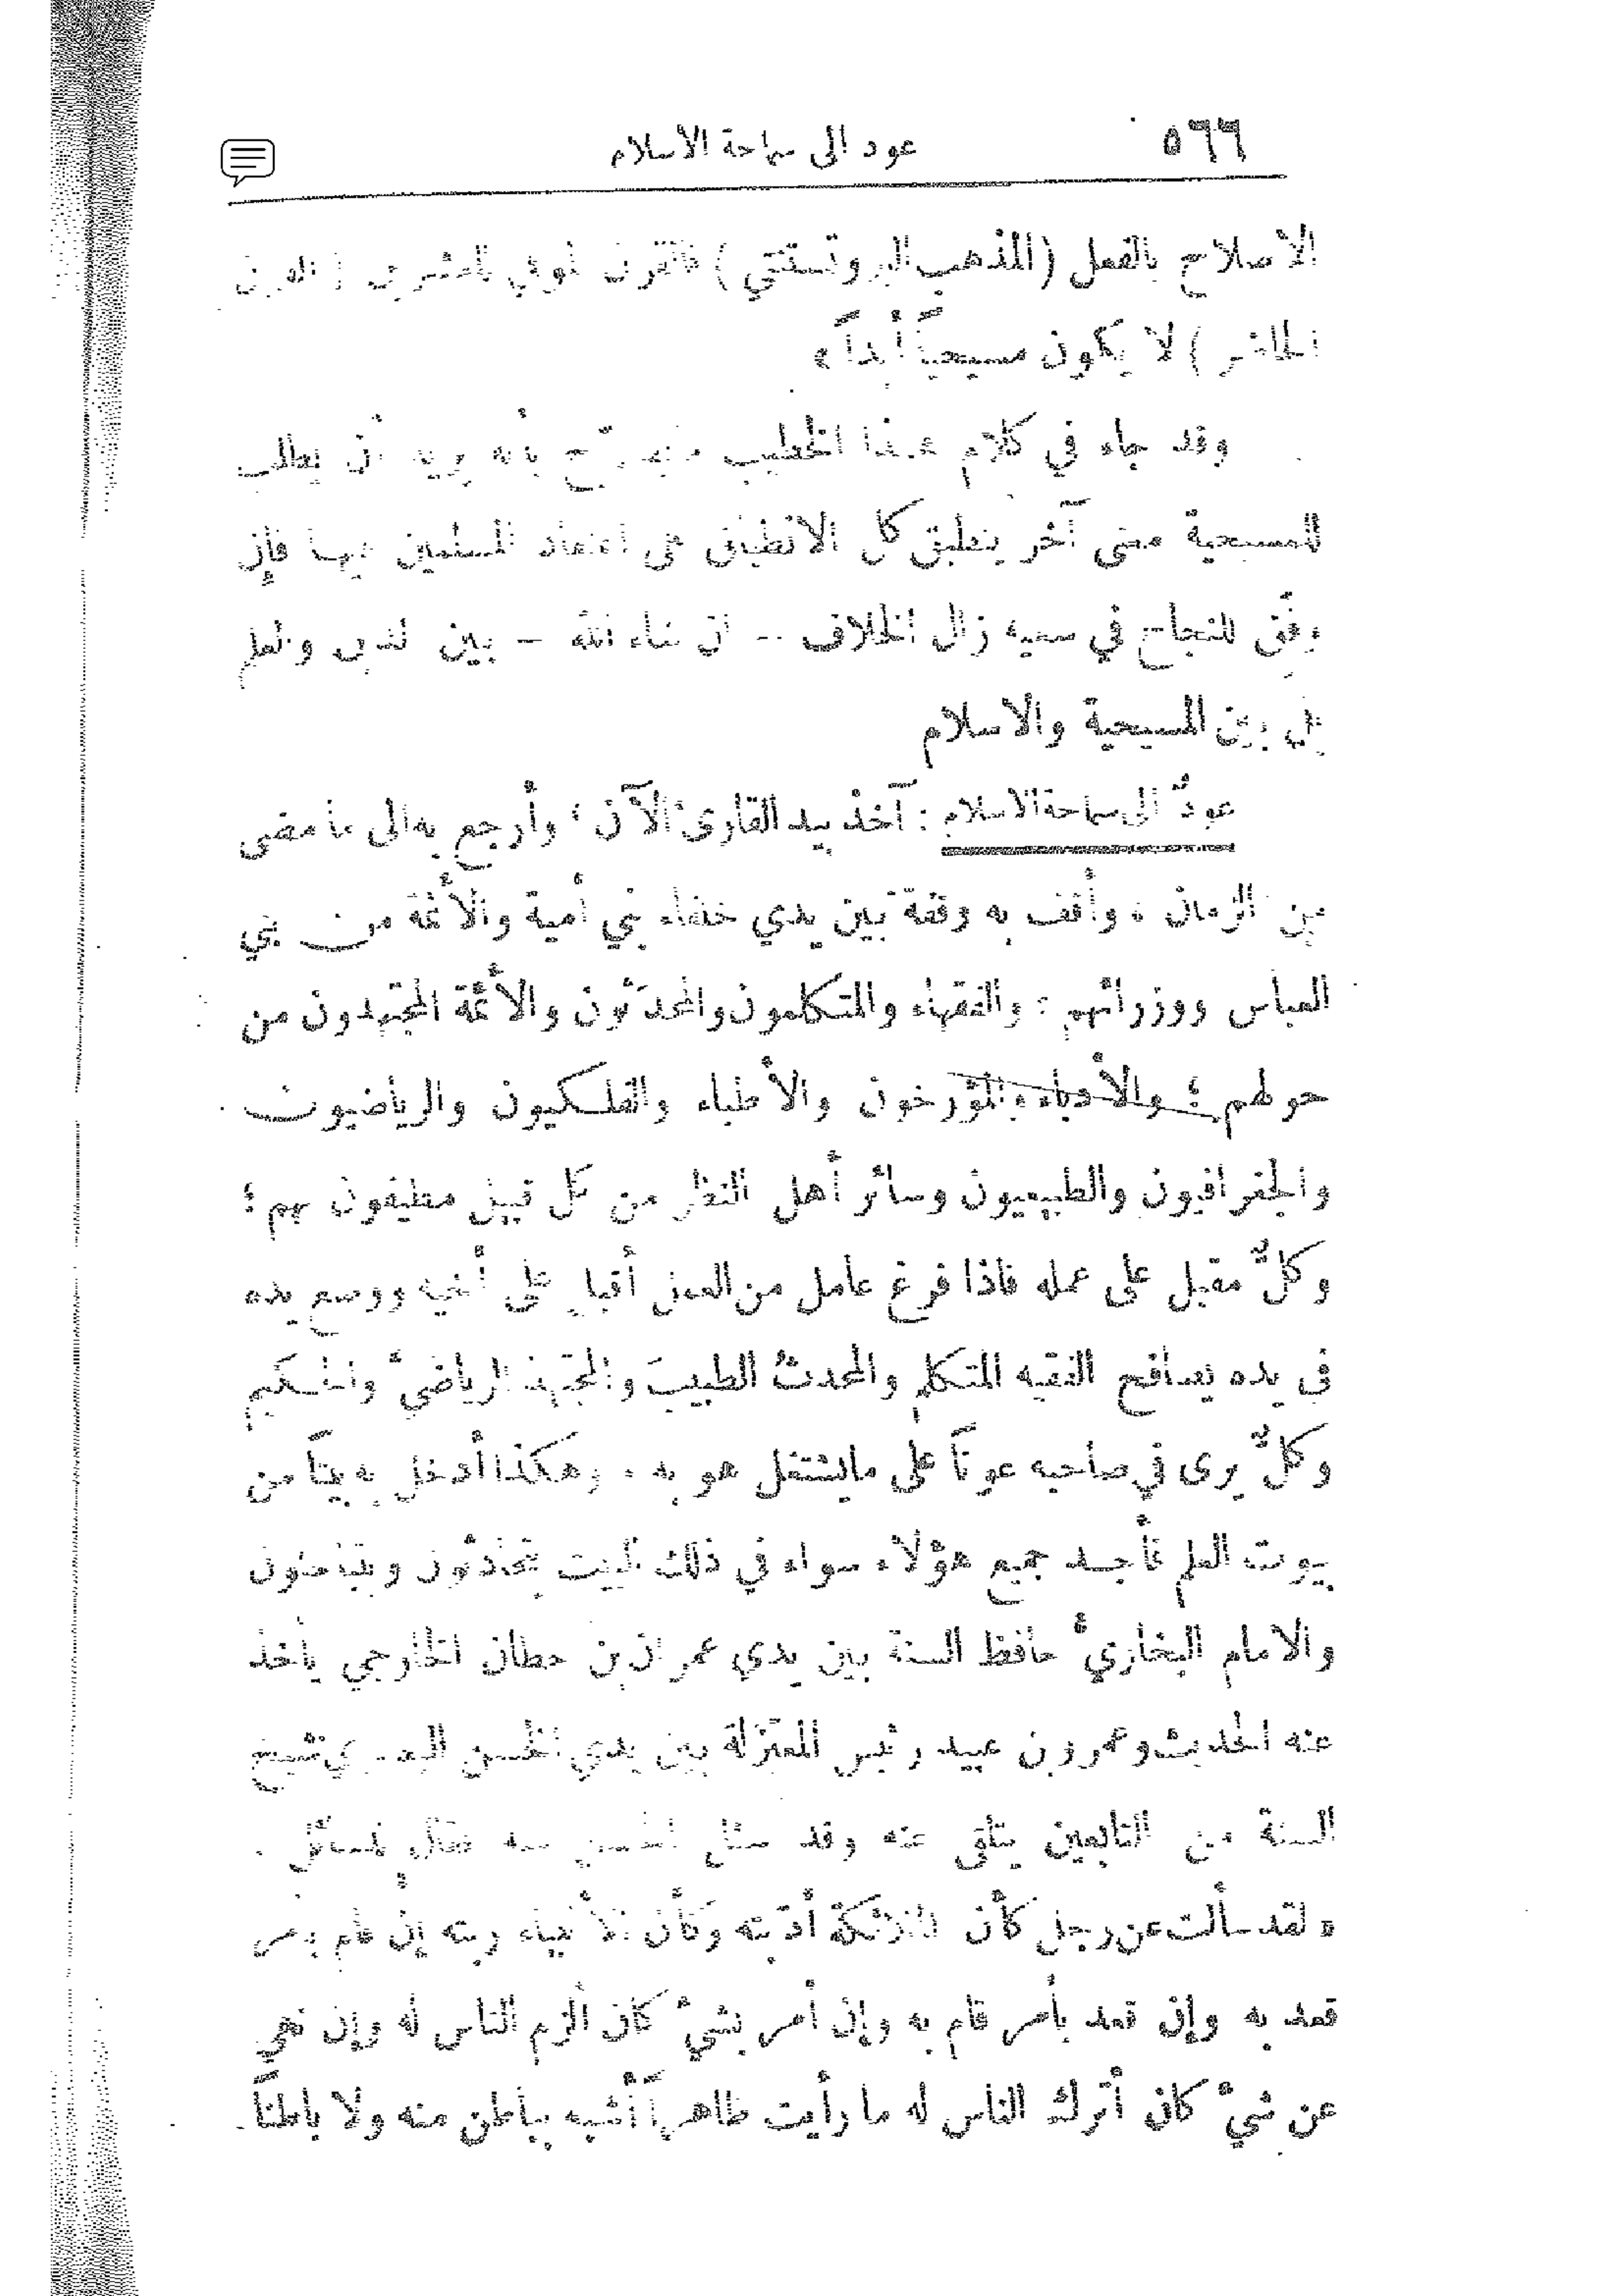 ٥٦٦
عود الى سماحة الاسلام
الاصلاح بالفعل (المذهب البروتستنتي) فالقرن الموفي للعشرين (القرن
الحاضر) لا يكون مسيحياً أبداً»
وقد جاء في كلام هذا الخطيب ما يصرّح بأنه يريد أن يطلب
للمسيحية معنى آخر ينطبق كل الانطباق على اعتقاد المسلمين فيها فإن
وفّق للنجاح في سعيه زال الخلاف -- ان شاء الله -- بين الدين والعلم
بل وبين المسيحية والاسلام
عودٌ الى سماحة الاسلام : آخذ بيد القارئ الآن ؛ وأرجع به الى ما مضى
من الزمان ، وأقف به وقفة بين يدي خلفاء بني أمية والأئمة من بني
العباس ووزرائهم : والفقهاء والمتكلمون والمحدّثون والأئمة المجتهدون من
حولهم ؛ والأدباء والمؤرخون والأطباء والفلكيون والرياضيون
والجغرافيون والطبيعيون وسائر أهل النظر من كل قبيل مطيفون بهم ؛
وكلٌّ مقبل على عمله فاذا فرغ عامل من العمل أقبل على أخيه ووضع يده
في يده يصافح الفقيه المتكلم والمحدثُ الطبيبَ والمجتهد الرياضيَّ والحكيم
وكلٌّ يرى في صاحبه عوناً على ما يشتغل هو به . وهكذا أدخل به بيتاً من
بيوت العلم فأجد جميع هؤلاء سواء في ذلك البيت يتحادثون ويتباحثون
والامام البخاريُّ حافظ السنة بين يدي عمران بن حطان الخارجي يأخذ
عنه الحديث وعمرو بن عبيد رئيس المعتزلة بين يدي الحسن البصري شيخ
السنة من التابعين يتلقى عنه وقد سئل الحسن عنه فقال للسائل .
« لقد سألت عن رجل كأن الملائكة أدّبته وكأن الأنبياء ربته إن قام بأمر
قعد به وإن قعد بأمر قام به وإن أمر بشيءٍ كان ألزم الناس له وإن نهي
عن شيءٍ كان أترك الناس له ما رأيت ظاهراً أشبه بباطن منه ولا باطناً